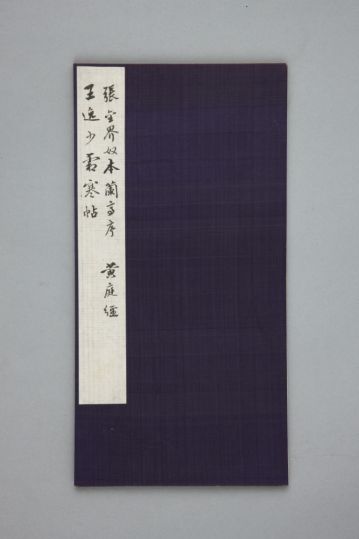 張金界奴本蘭亭序　黄庭經
王逸少霜寒帖